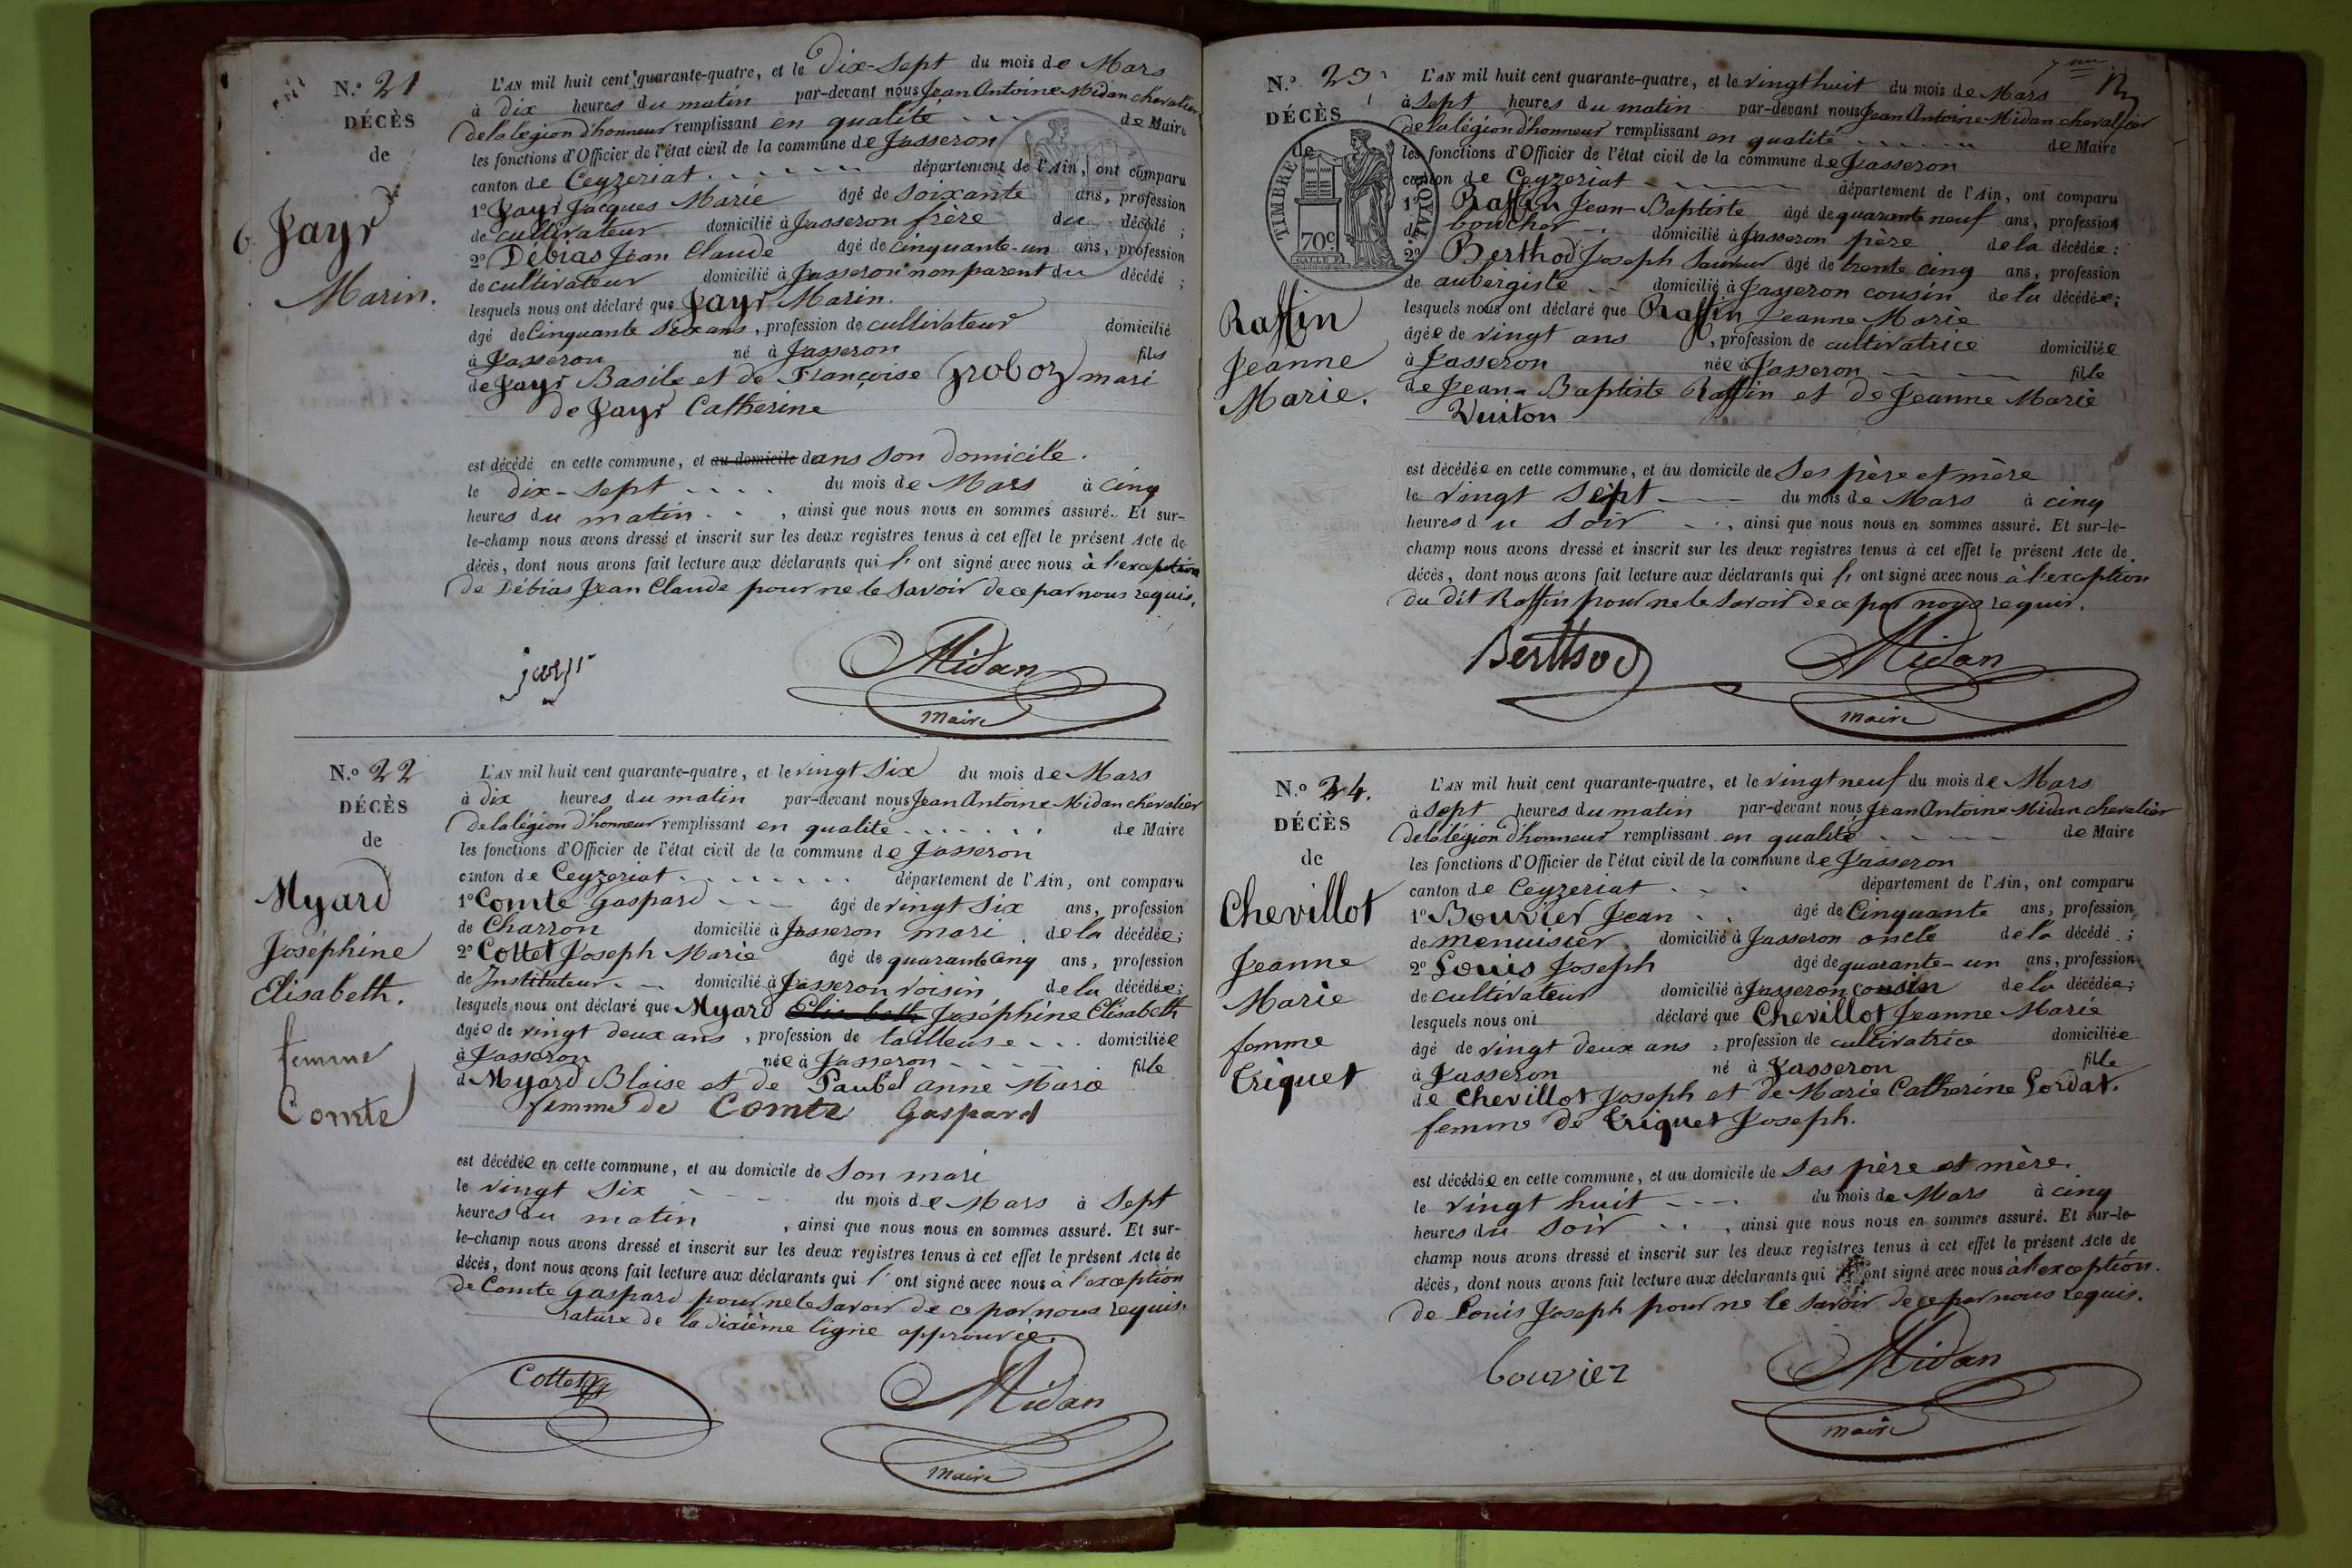 N.º 21
DÉCÈS
de
Jayr
Marin.
L'AN mil huit cent quarante-quatre, et le Dix-Sept du mois de Mars
à dix heures du matin par-devant nous Jean Antoine Midan chevalier
de la légion d'honneur remplissant en qualité de Maire
les fonctions d'Officier de l'état civil de la commune de Jasseron
canton de Ceyzeriat département de l'Ain, ont comparu
1º Jayr Jacques Marie âgé de soixante ans, profession
de cultivateur domicilié à Jasseron frère du décédé ;
2º Débias Jean Claude âgé de cinquante-un ans, profession
de cultivateur domicilié à Jasseron non parent du décédé ;
lesquels nous ont déclaré que Jayr Marin.
âgé de Cinquante Six ans, profession de cultivateur domicilié
à Jasseron né à Jasseron fils
de Jayr Basile et de Françoise Proboz mari
de Jayr Catherine
est décédé en cette commune, et au domicile de dans son domicile.
le dix-sept du mois de Mars à cinq
heures du matin, ainsi que nous nous en sommes assuré. Et sur-
le-champ nous avons dressé et inscrit sur les deux registres tenus à cet effet le présent Acte de
décès, dont nous avons fait lecture aux déclarants qui l' ont signé avec nous à l'exception
de Débias Jean Claude pour ne le savoir de ce par nous requis.
jayr Midan
maire
N.º 22
DÉCÈS
de
Myard
Joséphine
Elisabeth.
femme
Comte
L'AN mil huit cent quarante-quatre, et le vingt six du mois de Mars
à dix heures du matin par-devant nous Jean Antoine Midan chevalier
de la légion d'honneur remplissant en qualité de Maire
les fonctions d'Officier de l'état civil de la commune de Jasseron
canton de Ceyzeriat département de l'Ain, ont comparu
1º Comte Gaspard âgé de vingt six ans, profession
de Charron domicilié à Jasseron mari de la décédée ;
2º Cottet Joseph Marie âgé de quarante cinq ans, profession
de Instituteur domicilié à Jasseron voisin de la décédée ;
lesquels nous ont déclaré que Myard Elisabeth Joséphine Elisabeth
âgée de vingt deux ans, profession de tailleuse domiciliée
à Jasseron née à Jasseron fille
de Myard Blaise et de Paubel anne Marie
femme de Comte Gaspard
est décédée en cette commune, et au domicile de son mari
le vingt six du mois de Mars à Sept
heures du matin, ainsi que nous nous en sommes assuré. Et sur-
le-champ nous avons dressé et inscrit sur les deux registres tenus à cet effet le présent Acte de
décès, dont nous avons fait lecture aux déclarants qui l' ont signé avec nous à l'exception
de Comte Gaspard pour ne le savoir de ce par nous requis.
rature de la dixième ligne approuvée.
Cottet Midan
maire
N.º 23
DÉCÈS
de
TIMBRE ROYAL
70c
Raffin
Jeanne
Marie.
L'AN mil huit cent quarante-quatre, et le vingt huit du mois de Mars
à sept heures du matin par-devant nous Jean Antoine Midan chevallier
de la légion d'honneur remplissant en qualité de Maire
les fonctions d'Officier de l'état civil de la commune de Jasseron
canton de Ceyzeriat département de l'Ain, ont comparu
1º Raffin Jean-Baptiste âgé de quarante neuf ans, profession
de boucher domicilié à Jasseron père de la décédée :
2º Berthod Joseph Sauveur âgé de trente cinq ans, profession
de aubergiste domicilié à Jasseron cousin de la décédée ;
lesquels nous ont déclaré que Raffin Jeanne Marie
âgée de vingt ans, profession de cultivatrice domiciliée
à Jasseron née à Jasseron fille
de Jean-Baptiste Raffin et de Jeanne Marie
Vuiton
est décédée en cette commune, et au domicile de ses père et mère
le vingt sept du mois de Mars à cinq
heures du soir, ainsi que nous nous en sommes assuré. Et sur-le-
champ nous avons dressé et inscrit sur les deux registres tenus à cet effet le présent Acte de
décès, dont nous avons fait lecture aux déclarants qui l' ont signé avec nous à l'exception
du dit Raffin pour ne le savoir de ce par nous requis.
Berthod Midan
maire
N.º 24.
DÉCÈS
de
Chevillot
Jeanne
Marie
femme
Triquet
L'AN mil huit cent quarante-quatre, et le vingt neuf du mois de Mars
à sept heures du matin par-devant nous Jean Antoine Midan chevalier
de la légion d'honneur remplissant en qualité de Maire
les fonctions d'Officier de l'état civil de la commune de Jasseron
canton de Ceyzeriat département de l'Ain, ont comparu
1º Bouvier Jean âgé de Cinquante ans, profession
de menuisier domicilié à Jasseron oncle de la décédé ;
2º Louis Joseph âgé de quarante-un ans, profession
de cultivateur domicilié à Jasseron cousin de la décédée ;
lesquels nous ont déclaré que Chevillot Jeanne Marie
âgé de vingt deux ans, profession de cultivatrice domiciliée
à Jasseron né à Jasseron fille
de Chevillot Joseph et de Marie Catherine Lordat.
femme de Triquet Joseph.
est décédée en cette commune, et au domicile de ses père et mère.
le vingt huit du mois de Mars à cinq
heures du soir, ainsi que nous nous en sommes assuré. Et sur-le-
champ nous avons dressé et inscrit sur les deux registres tenus à cet effet le présent Acte de
décès, dont nous avons fait lecture aux déclarants qui ont signé avec nous à l'exception.
de Louis Joseph pour ne le savoir de ce par nous requis.
bouvier Midan
maire